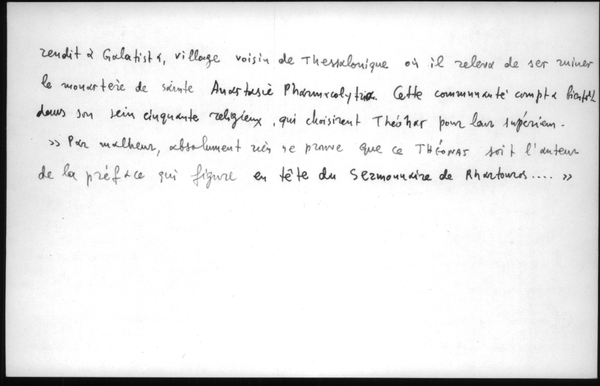 rendit à Galatista, village voisin de Thessalonique où il releva de ses ruines
le monastère de sainte Anastasie Pharmacolytria. Cette communauté compta bientôt
dans son sein cinquante religieux, qui choisirent Théonas pour leur supérieur.
» Par malheur, absolument rien ne prouve que ce THÉONAS soit l'auteur
de la préface qui figure en tête du Sermonnaire de Rhartouros.... »